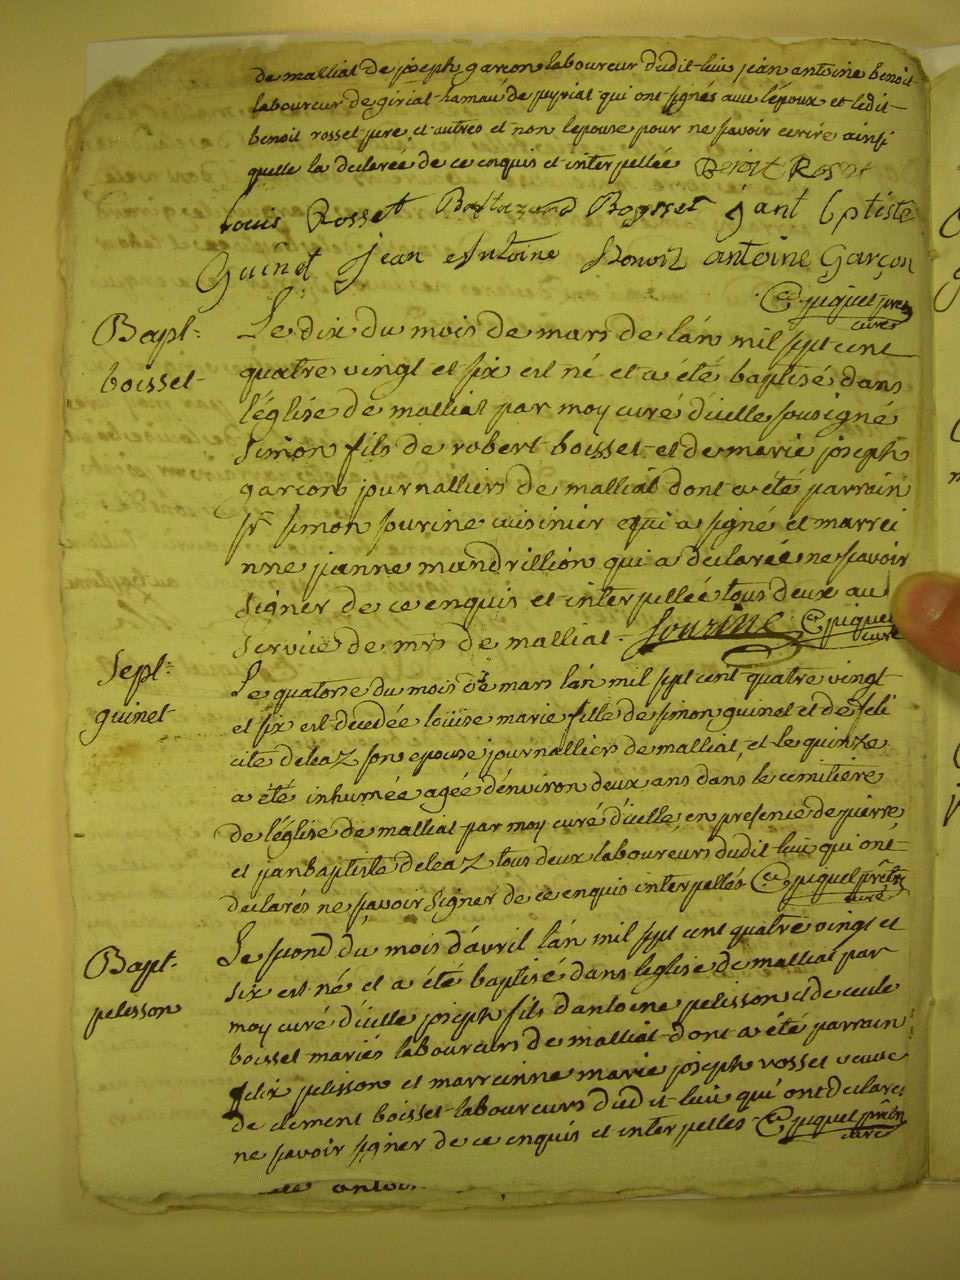 de malliat de joseph garçon laboureur dudit lui jean antoine benoit
laboureur de giriat hamau de pyriat qui ont signés avec l'époux et ledit
benoit rosset pere et autres et non lepouse pour ne savoir ecrire ainsi
quelle la declarée de ce enquis et interpellée Benoit Roset
Louis Rosset Baltazard Boysset jant bptiste
Guinet jean Antoine Benoit antoine Garçon
piquet pre
curé
Bapt:
boisset
Le dix du mois de mars de lán mil sept cent
quatre vingt et six est né et a été baptisé dans
l'église de malliat par moy curé d'icelle sousigné
Simon fils de robert boisset et de marie joseph
garçon journalliers de malliat dont a été parrain
sr simon sourine cuisinier qui a signé et marrei
nne janne mandrillion qui a declarée ne savoir
signer de ce enquis et interpellée tous deux au
service de mrs de malliat. Sourine piquet
curé
Sept:
guinet
Le quatorse du mois de mars lán mil sept cent quatre vingt
et six est decedée loüise marie fille de simon guinet et de feli
cité deleaz son epouse journalliers de malliat, et le quinze
a été inhumée agée d'environ deux ans dans le cemitiere
de l'église de malliat par moy curé d'icelle, en presence de pierre
et jeanbaptiste deleaz tous deux laboureurs dudit lui qui ont
declarés ne savoir signer de ce enquis interpellés piquet prêtre
curé
Bapt.
pelisson
Le second du mois d'avril lán mil sept cent quatre vingt et
six est né et a été baptisé dans leglise de malliat par
moy curé d'icelle joseph fils dantoine pelisson et de cecile
boisset mariés laboureurs de malliat dont a été parrain
felix pelisson et marreinne marie joseph rosset veuve
de clement boisset laboureurs dudit lui qui ont declaré
ne savoir signer de ce enquis et interpellés piquet prêtre
curé